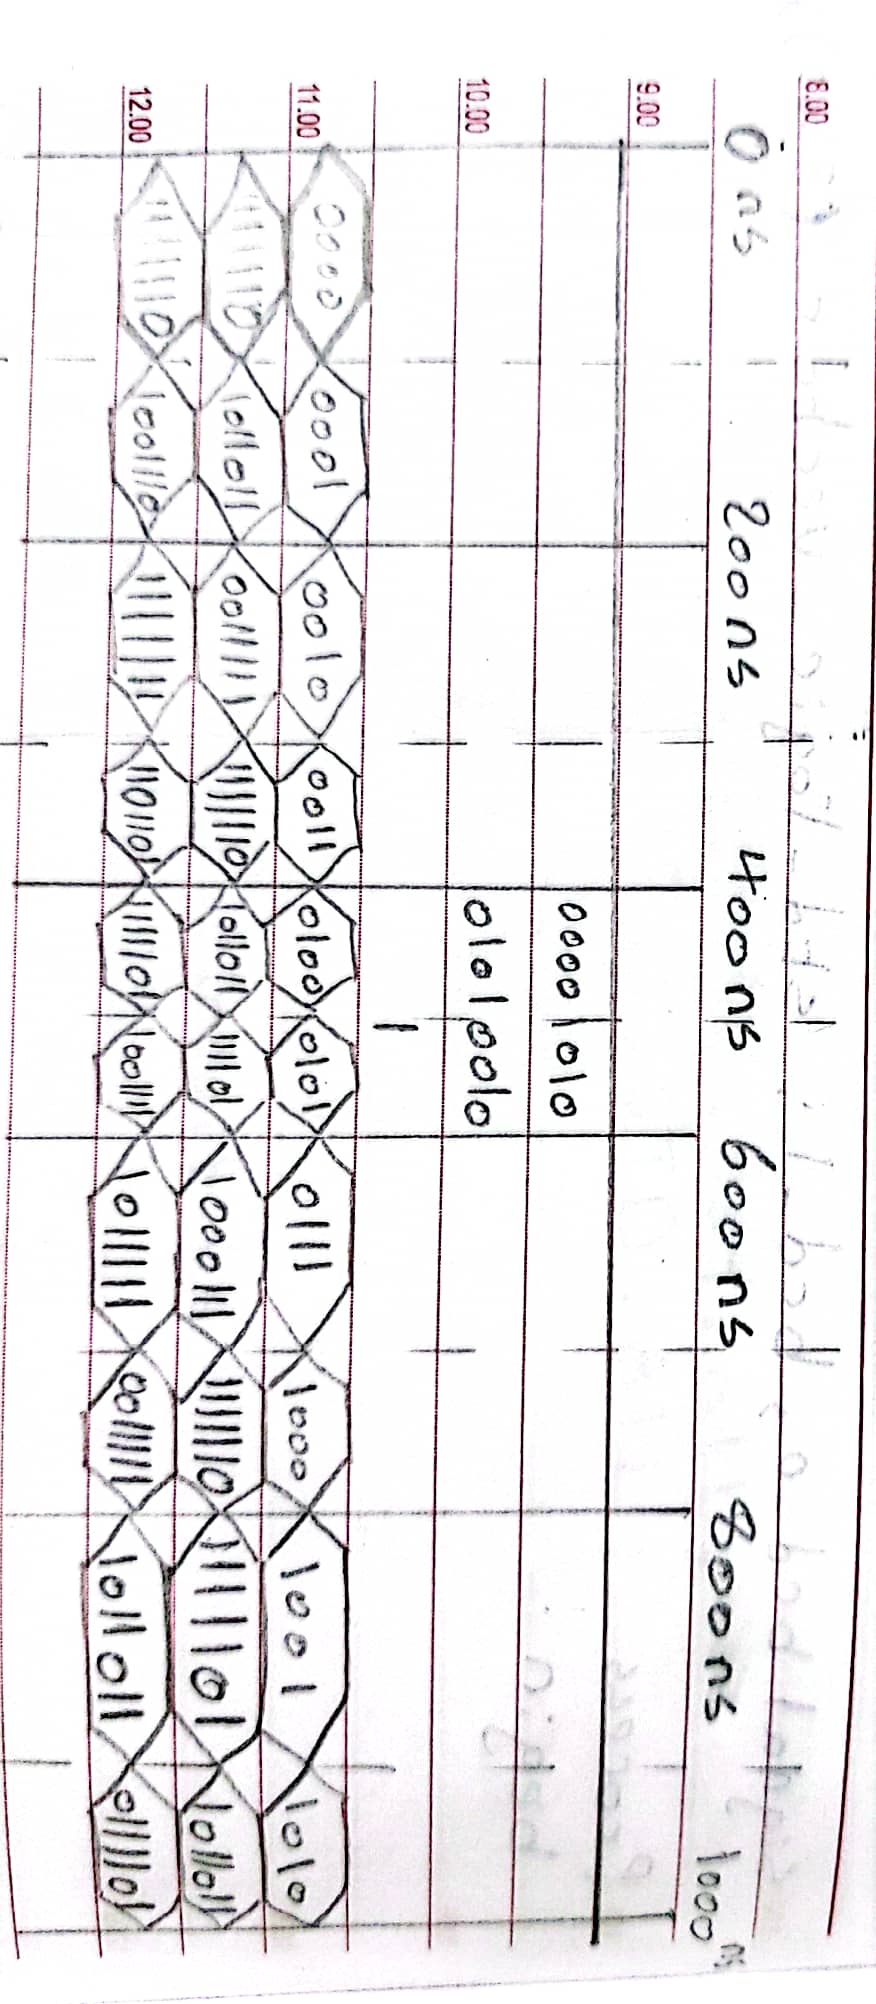 8.00
9.00
10.00
11.00
12.00
0 ns 200 ns 400 ns 600 ns 800 ns 1000 ns
00001010
01010010
1
0000 0001 0010 0011 0100 0101 0111 1000 1001 1010
1111110 1011011 0011111 1111110 1011011 111101 1000111 1111110 1111101 1011011
1111110 1001110 1111111 1101101 1111101 1001111 1011111 0011111 1011011 0111101